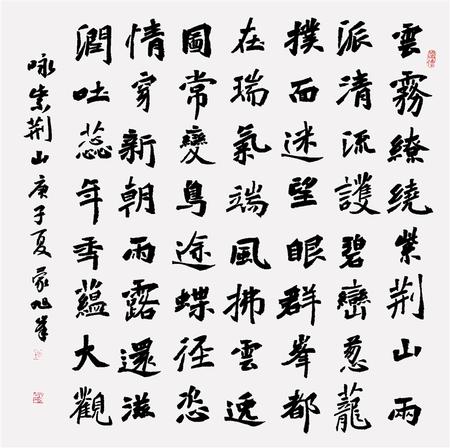 雲霧繚繞紫荆山兩
派清流護碧巒葱蘢
撲面迷望眼群峯都
在瑞氣端風拂雲逸
圖常變鳥途蝶徑恣
情穿新朝雨露還滋
潤吐蕊年年蘊大觀
咏紫荆山庚子夏旭峯